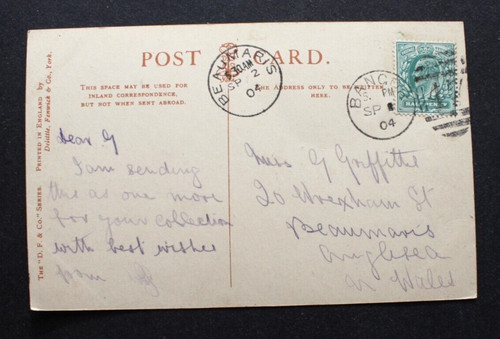 POST CARD.
THIS SPACE MAY BE USED FOR
INLAND CORRESPONDENCE,
BUT NOT WHEN SENT ABROAD.
THE ADDRESS ONLY TO BE WRITTEN
HERE.
BEAUMARIS
30AM
SP 2
04
BANG
PM
SP
04
HALF PENNY
The "D. F. & Co." Series. Printed in England by
Delittle, Fenwick & Co., York.
Dear G
I am sending
this as one more
for your collection
with best wishes
from
Miss G Griffiths
20 Wrexham St
Beaumaris
Anglesea
N Wales